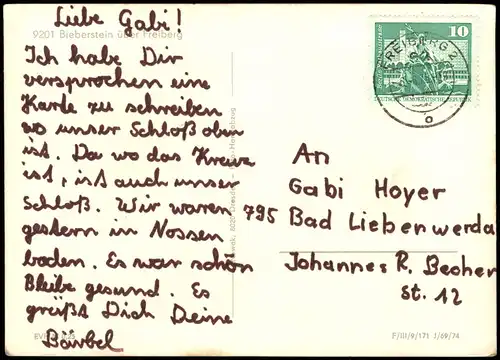 Liebe Gabi!
9201 Bieberstein über Freiberg
Ich habe Dir
versprochen eine
Karte zu schreiben
wo unser Schloß oben
ist. Da wo das Kreuz
ist, ist auch unser
Schloß. Wir waren
gestern in Nossen
baden. Es war schön
Bleibe gesund. Es
grüßt Dich Deine
Bärbel
10
DEUTSCHE DEMOKRATISCHE REPUBLIK
FREIBERG 2
An
Gabi Hoyer
795 Bad Liebenwerda
Johannes R. Becher
st. 12
F/III/9/171 J/69/74